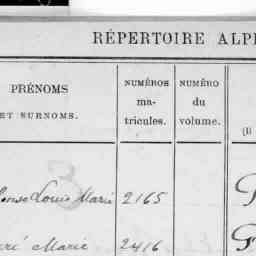 RÉPERTOIRE ALP
PRÉNOMS
ET SURNOMS.
NUMÉROS
ma-
tricules.
NUMÉRO
du
volume.
(1
Louis Marie 2165
Marie 2416